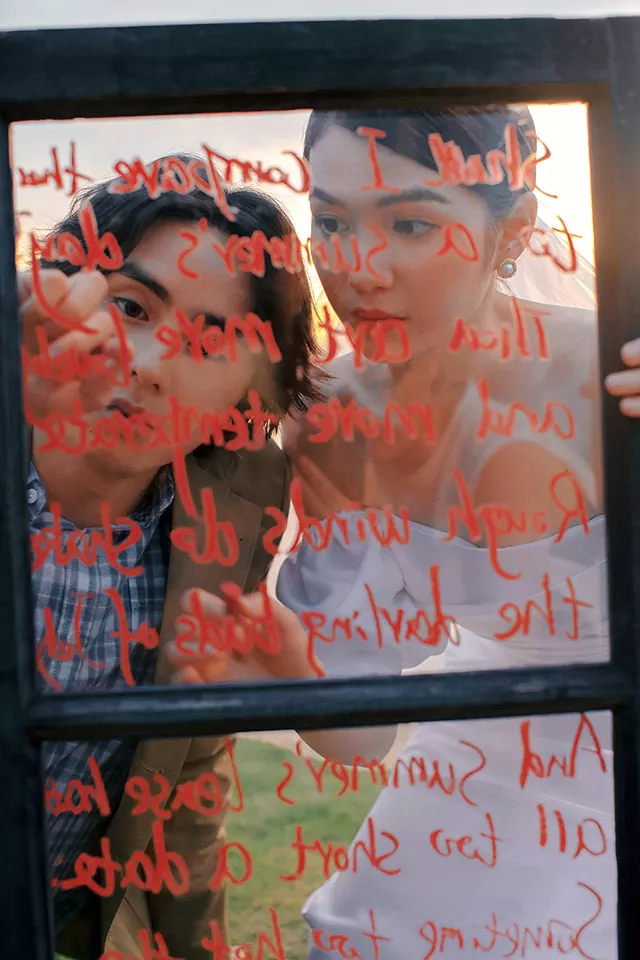 Shall I Compare thee
to a Summer's day
Thou art more lovely
and more temperate
Rough winds do shake
the darling buds of July
And Summer's lease has
all too short a date.
Sometime too hot the